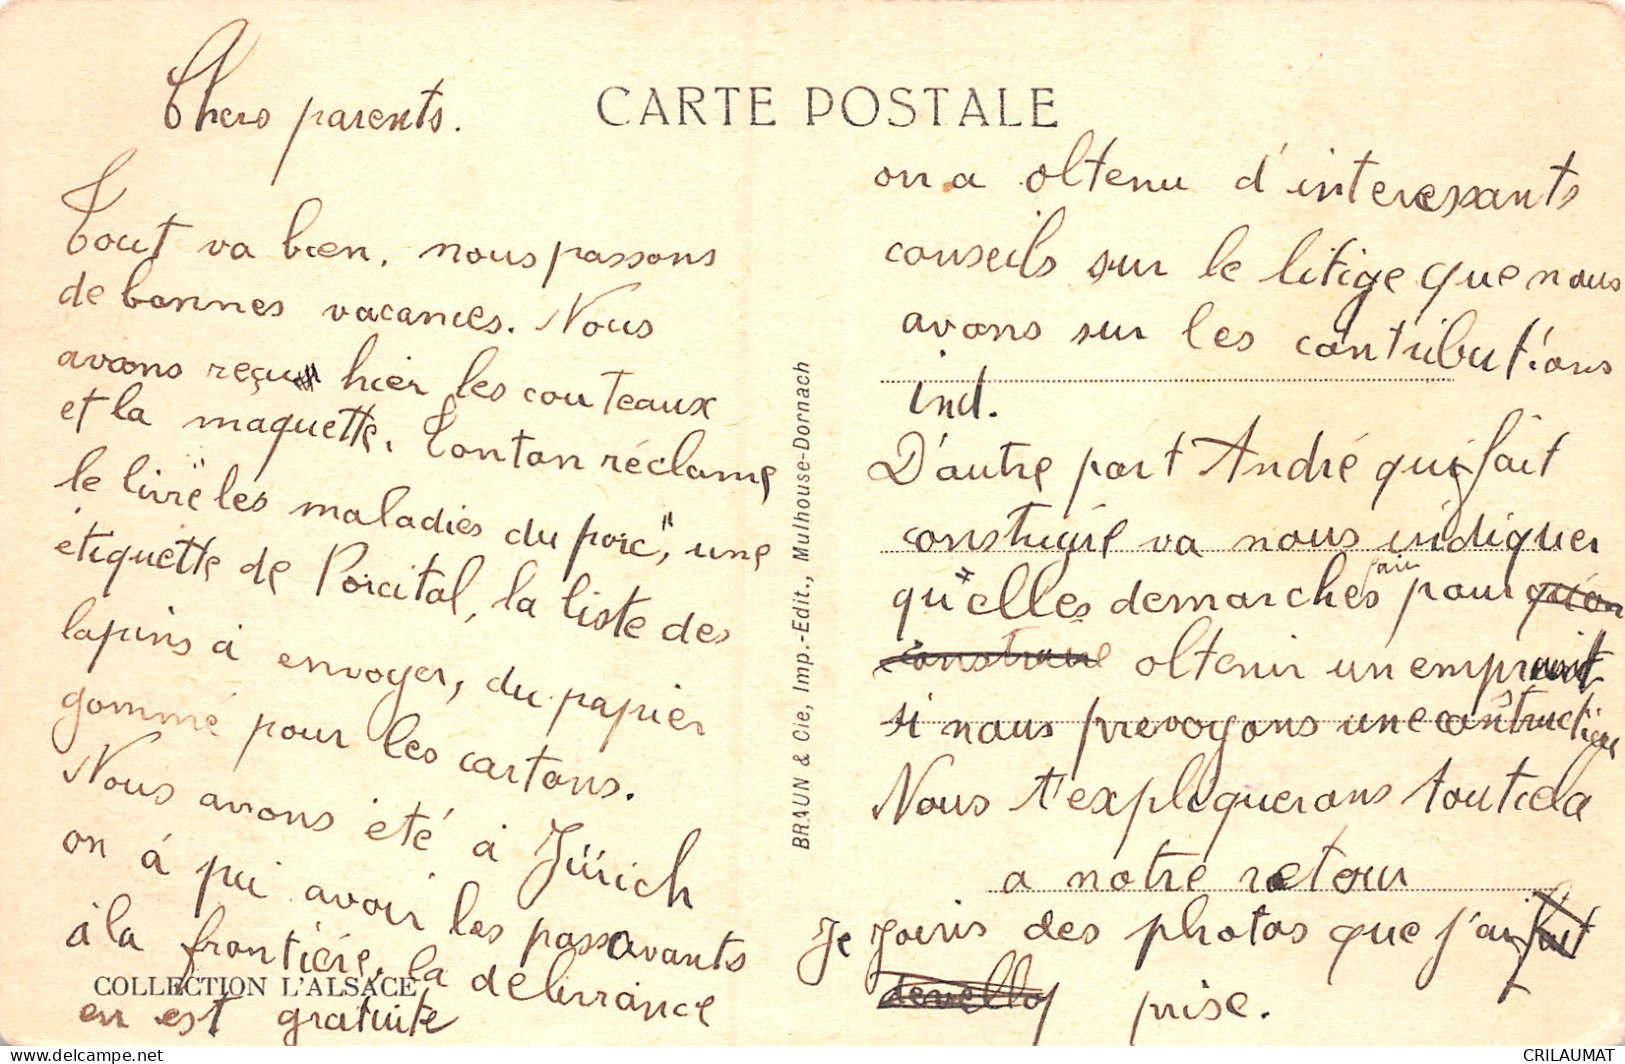 CARTE POSTALE
Chers parents.
Tout va bien, nous passons
de bonnes vacances. Nous
avons reçu hier les couteaux
et la maquette. Tonton réclame
le livre "les maladies du porc", une
étiquette de Porcital, la liste des
lapins à envoyer, du papier
gommé pour les cartons.
Nous avons été à Zürich
on à pu avoir les passavants
à la frontière, la delivrance
en est gratuite
COLLECTION L'ALSACE
BRAUN & Cie, Imp.-Edit., Mulhouse-Dornach
on a obtenu d'interessants
conseils sur le litige que nous
avons sur les contributions
ind.
D'autre part André qui fait
construire va nous indiquer
qu'elles demarches pour
obtenir un emprunt
si nous prevoyons une construction
Nous t'expliquerons tout cela
a notre retour
Je joins des photos que j'ai
prise.
CRILAUMAT
delcampe.net